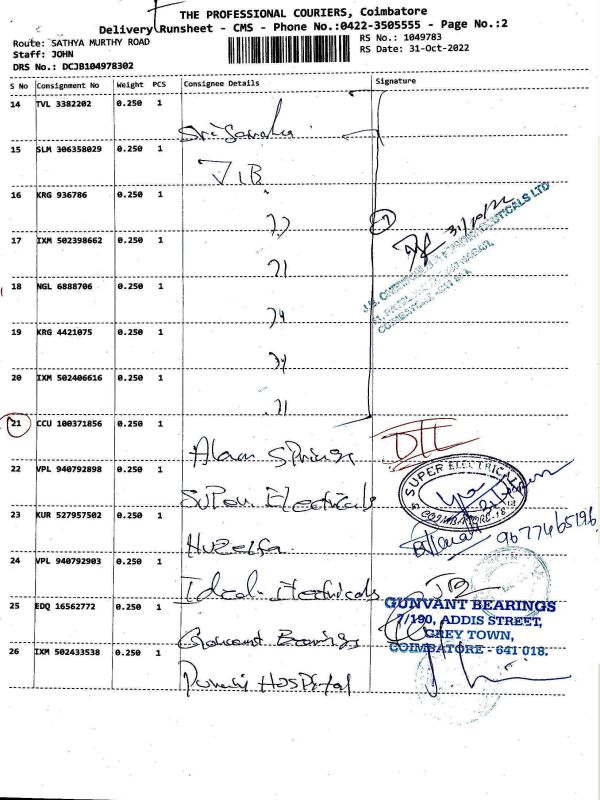 THE PROFESSIONAL COURIERS, Coimbatore
Delivery Runsheet - CMS - Phone No.:0422-3505555 - Page No.:2
Route: SATHYA MURTHY ROAD
Staff: JOHN
DRS No.: DCJB104978302
RS No.: 1049783
RS Date: 31-Oct-2022
S No Consignment No Weight PCS Consignee Details Signature
14 TVL 3382202 0.250 1
15 SLM 306358029 0.250 1 JIB
16 KRG 936786 0.250 1 ,,
7 31/10/22
17 IXM 502398662 0.250 1 ,,
18 NGL 6888706 0.250 1 ,,
19 KRG 4421075 0.250 1 ,,
20 IXM 502406616 0.250 1 ,,
21 CCU 100371856 0.250 1 Springs
22 VPL 940792898 0.250 1 Super Electricals
SUPER ELECTRICALS
COIMBATORE
23 KUR 527957502 0.250 1 Huzeifa
9677465196
24 VPL 940792903 0.250 1 Ideal Electricals
25 EDQ 16562772 0.250 1 Bearings
GUNVANT BEARINGS
7/190, ADDIS STREET,
GREY TOWN,
COIMBATORE - 641 018.
26 IXM 502433538 0.250 1 Hospital